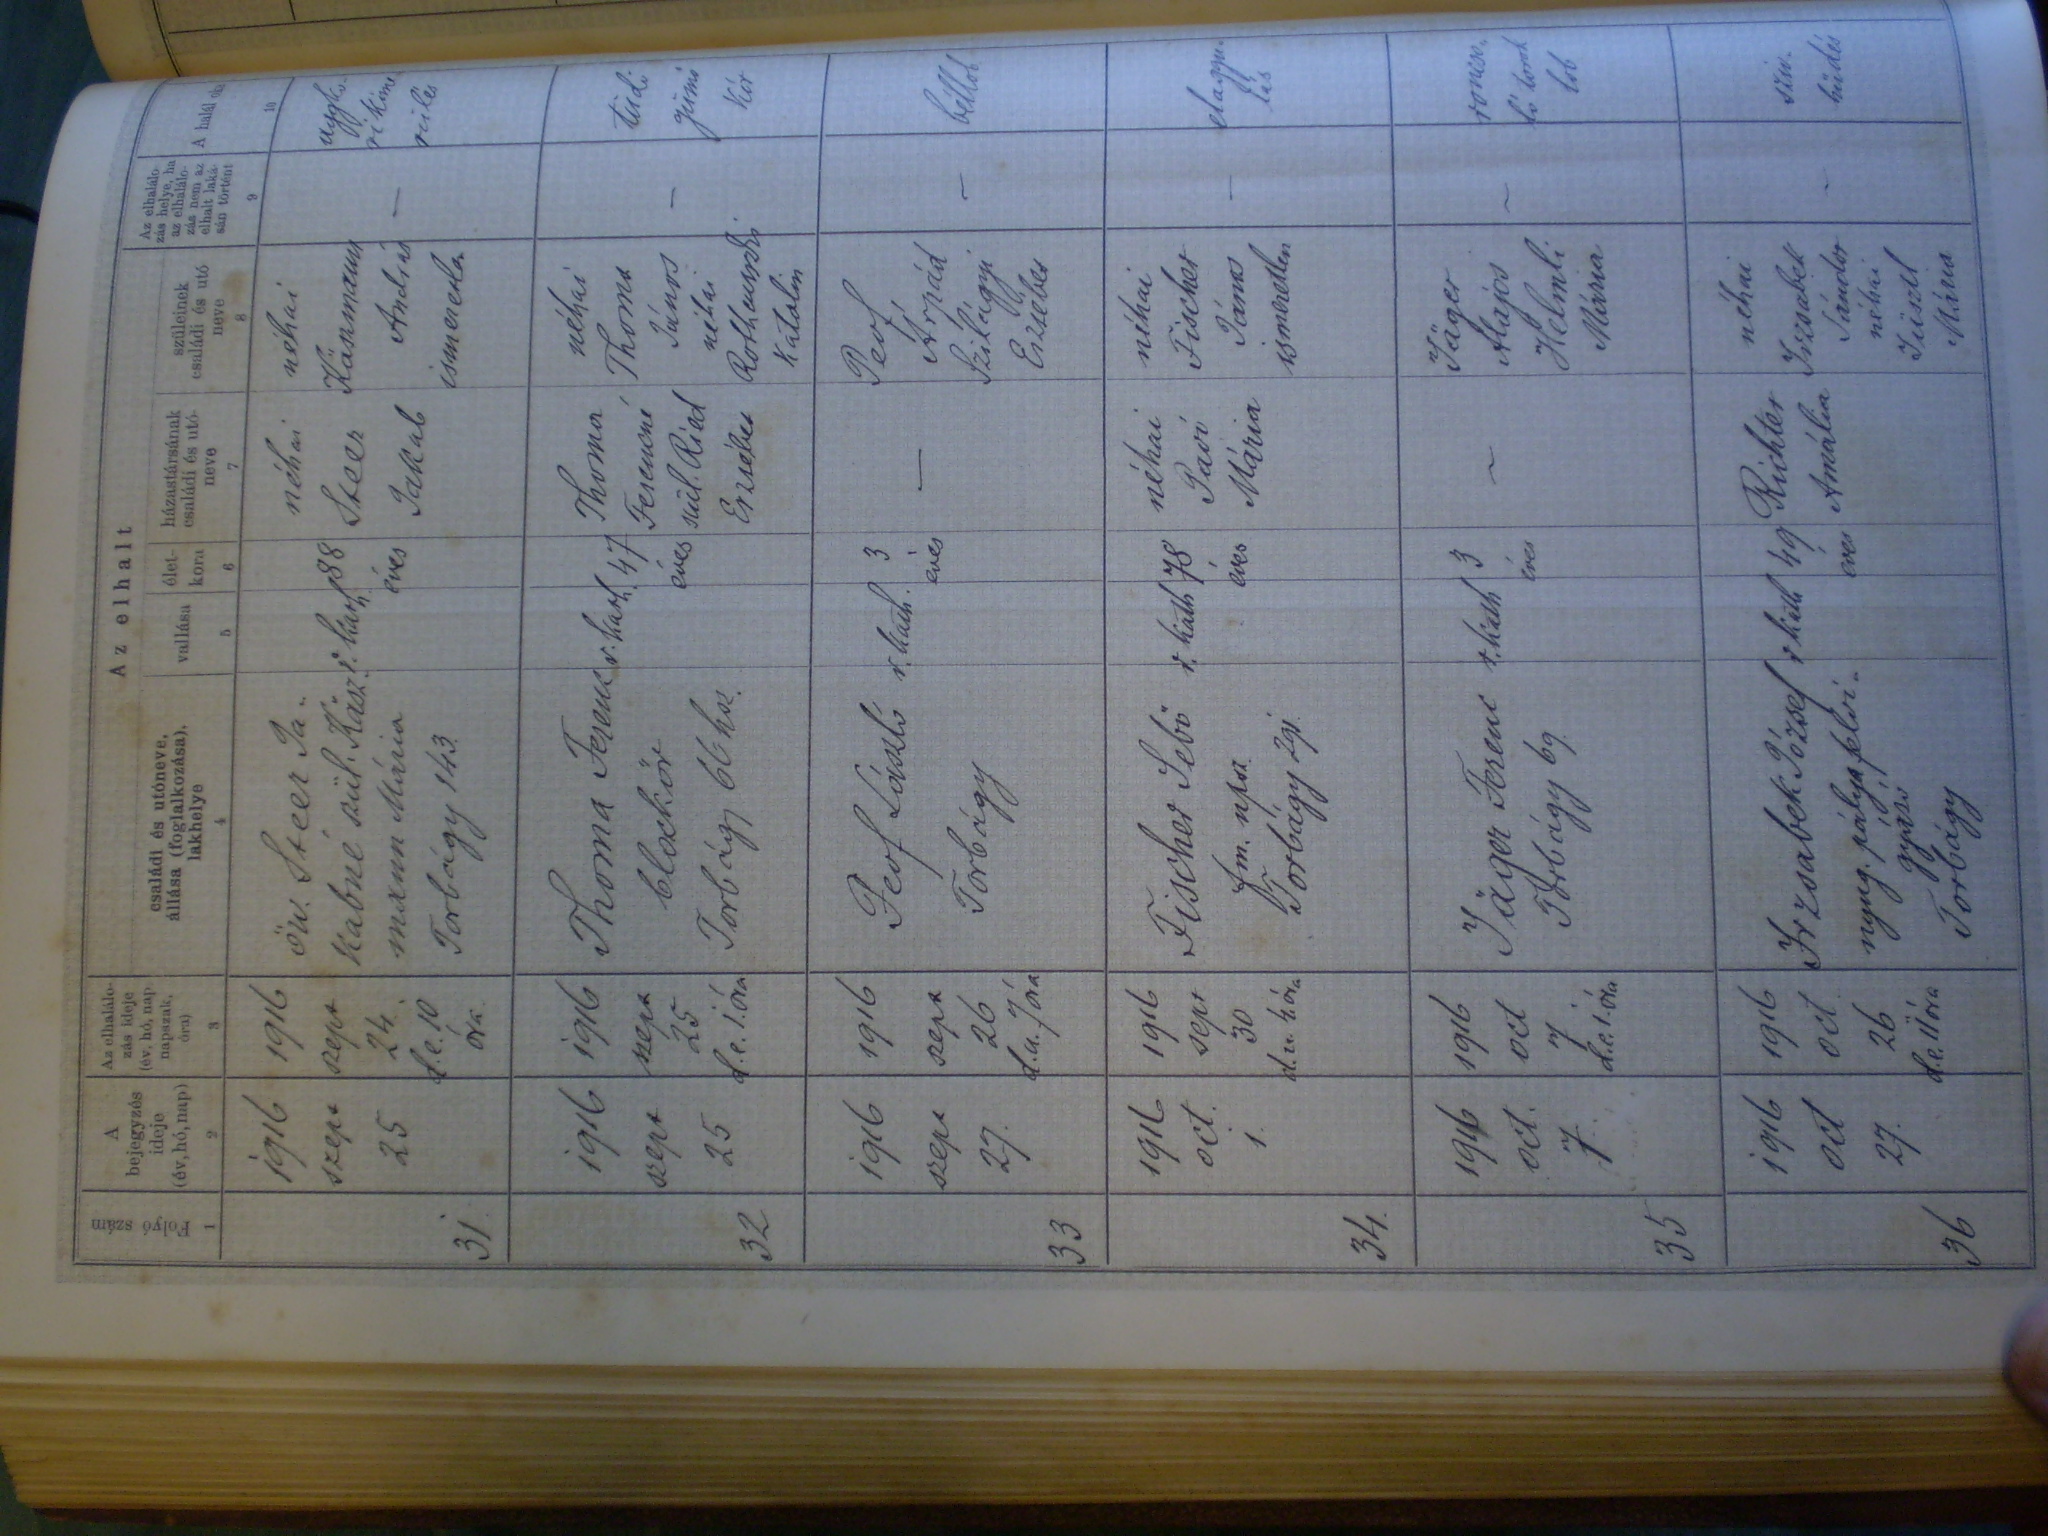 Az elhalt
Folyó szám
A bejegyzés ideje (év, hó, nap)
Az elhalálozás ideje (év, hó, nap napszak, óra)
családi és utóneve, állása (foglalkozása), lakhelye
vallása
életkora
házastársának családi és utóneve
szüleinek családi és utóneve
Az elhalálozás helye, ha az elhalálozás nem az elhalt lakásán történt
A halál oka
1 2 3 4 5 6 7 8 9 10
31.
1916
szept
25
1916
szept
24.
d.e. 10
óra.
öw. Steer Ja-
kabné szül. Käsz-
mann Mária
Torbágy 143.
r. kath.
88
éves
néhai
Steer
Jakab
néhai
Käszmann
András
ismeretlen
—
32
1916
szept
25
1916
szept
25
d.e. 1. óra
Thoma Ferenc
blockőr
Torbágy, 66 ház.
r. kath.
47
éves
Thoma
Ferencné
szül. Ried
Erzsébet
néhai
Thoma
János
néhai
Katalin
—
tüdő
gümő
kór
33
1916
szept
27.
1916
szept
26
d.u. 7 óra
László
Torbágy
r. kath.
3
éves
—
Árpád
Szilágyi
Erzsébet
—
béllob
34.
1916
oct.
1.
1916
sept
30
d.u. 4 óra
Fischer Sebő
fm. npsz.
Torbágy 291.
r. kath
78
éves
néhai
Mária
néhai
Fischer
János
ismeretlen
—
elaggu-
lás
35
1916
oct.
7.
1916
oct
7
d.e. 1. óra
Jäger Ferenc
Torbágy 69.
r. kath
3
éves
—
Jäger
Alajos
Helmli
Mária
—
roncso-
ló torok
lob
36
1916
oct
27.
1916
oct
26
d.e. 11 óra
Irzsabek József
nyug. pályafelvi-
gyázó
Torbágy
r. kath
49
éves
Richter
Amália
néhai
Irzsabek
Sándor
néhai
Mária
—
sziv-
hüdés